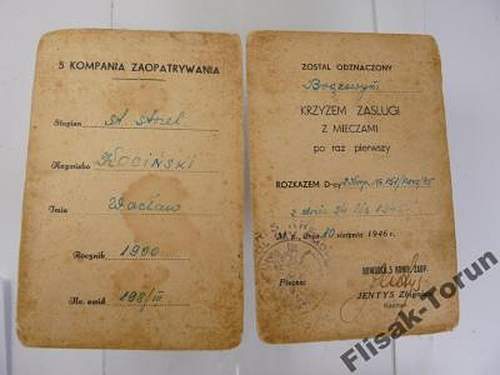 5 KOMPANIA ZAOPATRYWANIA
Stopień st. strzel
Nazwisko KŁOCIŃSKI
Imie Wacław
Rocznik 1900
Nr. ewid. 198/III
ZOSTAŁ ODZNACZONY
Brązowym
KRZYŻEM ZASŁUGI
Z MIECZAMI
po raz pierwszy
ROZKAZEM D-cy
z dnia
M. p., dnia 10 sierpnia 1946 r.
DOWÓDCA 5 KOMP. ZAOP.
Pieczęć
JENTYS
Kapitan
Flisak-Torun